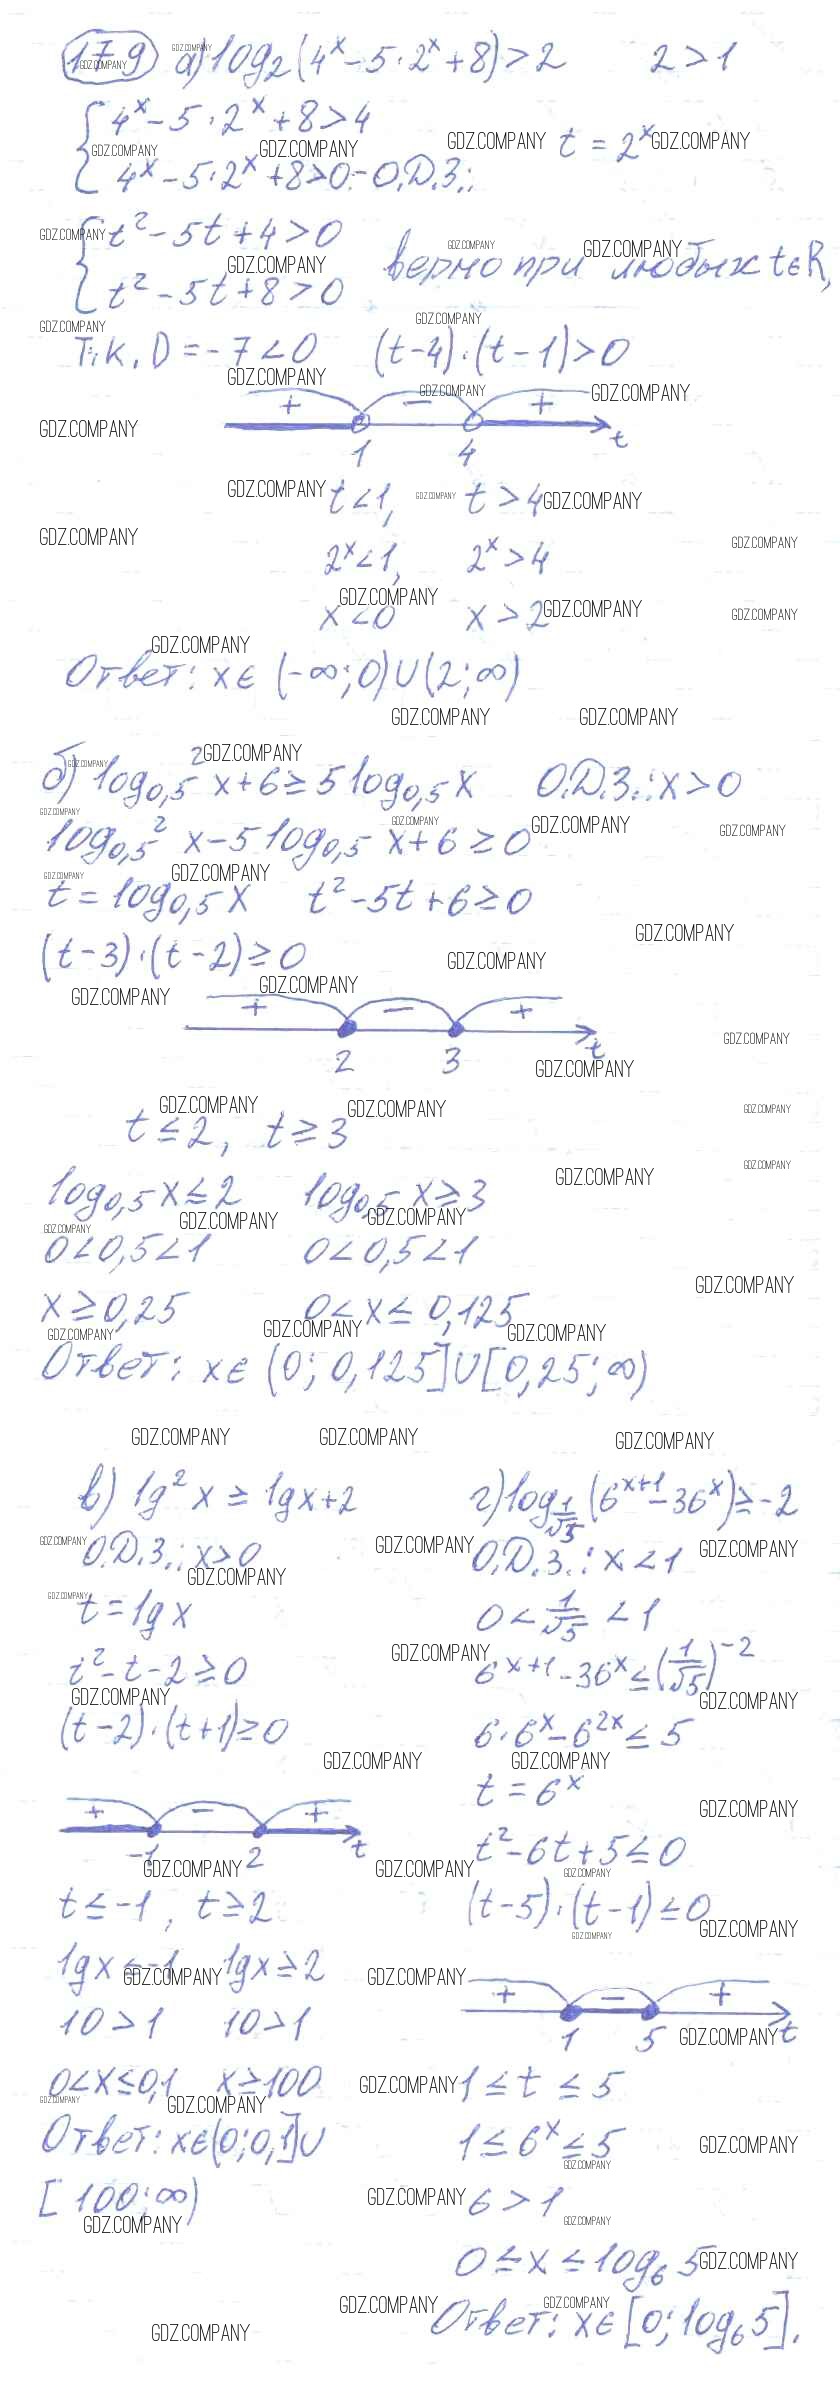 179 а) log₂(4ˣ-5·2ˣ+8)>2 2>1
{4ˣ-5·2ˣ+8>4
4ˣ-5·2ˣ+8>0 - О.Д.З.; t=2ˣ
{t²-5t+4>0
t²-5t+8>0 верно при любых t∈R,
т.к. D=-7<0 (t-4)·(t-1)>0
+ - +
1 4 t
t<1, t>4
2ˣ<1, 2ˣ>4
x<0 x>2
Ответ: x∈(-∞;0)∪(2;∞)
б) log²₀,₅ x+6≥5log₀,₅x О.Д.З.: x>0
log₀,₅² x-5log₀,₅ x+6≥0
t=log₀,₅x t²-5t+6≥0
(t-3)·(t-2)≥0
+ - +
2 3 t
t≤2, t≥3
log₀,₅x≤2 log₀,₅x≥3
0<0,5<1 0<0,5<1
x≥0,25 0<x≤0,125
Ответ: x∈(0;0,125]∪[0,25;∞)
в) lg²x≥lgx+2
О.Д.З.: x>0
t=lgx
t²-t-2≥0
(t-2)·(t+1)≥0
+ - +
-1 2 t
t≤-1, t≥2
lgx≤-1 lgx≥2
10>1 10>1
0<x≤0,1 x≥100
Ответ: x∈(0;0,1]∪
[100;∞)
г) log_(1/√5)(6ˣ⁺¹-36ˣ)≥-2
О.Д.З.: x<1
0<1/√5<1
6ˣ⁺¹-36ˣ≤(1/√5)⁻²
6·6ˣ-6²ˣ≤5
t=6ˣ
t²-6t+5≤0
(t-5)·(t-1)≤0
+ - +
1 5 t
1≤t≤5
1≤6ˣ≤5
6>1
0≤x≤log₆5
Ответ: x∈[0;log₆5].
GDZ.COMPANY